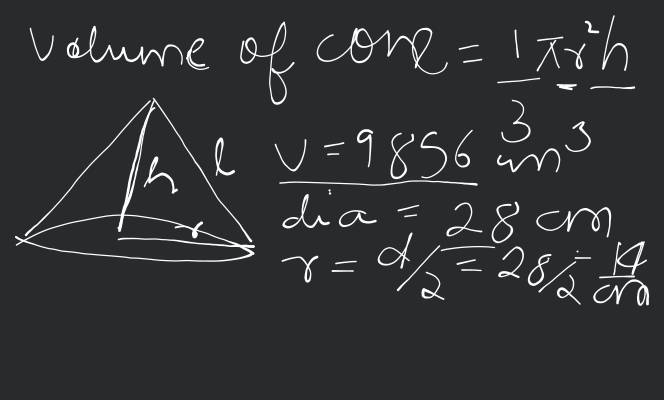 Volume of cone = 1/3 πr²h
h l r
V = 9856 cm³
dia = 28 cm
r = d/2 = 28/2 = 14 cm